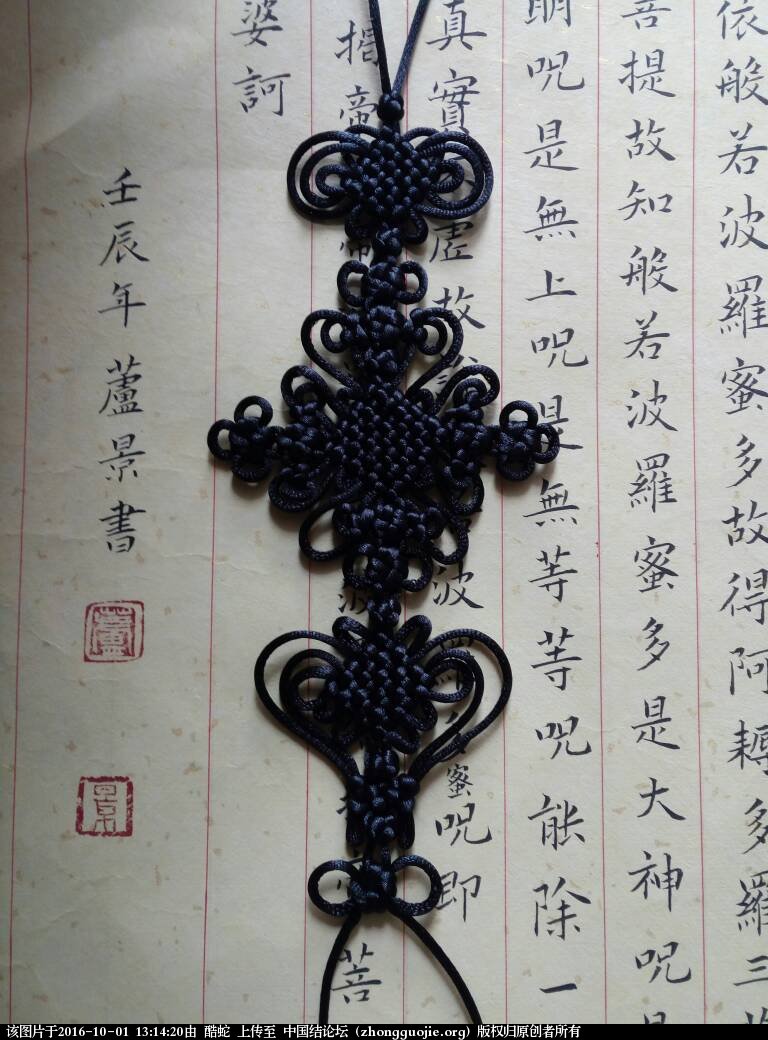 依般若波羅蜜多故得阿耨多羅三
菩提故知般若波羅蜜多是大神呪
明呪是無上呪是無等等呪能除一
真實虛故波蜜呪即
揭帝菩
婆訶
壬辰年蘆景書
蘆
景
该图片于2016-10-01 13:14:20由 酷蛇 上传至 中国结论坛 (zhongguojie.org) 版权归原创者所有